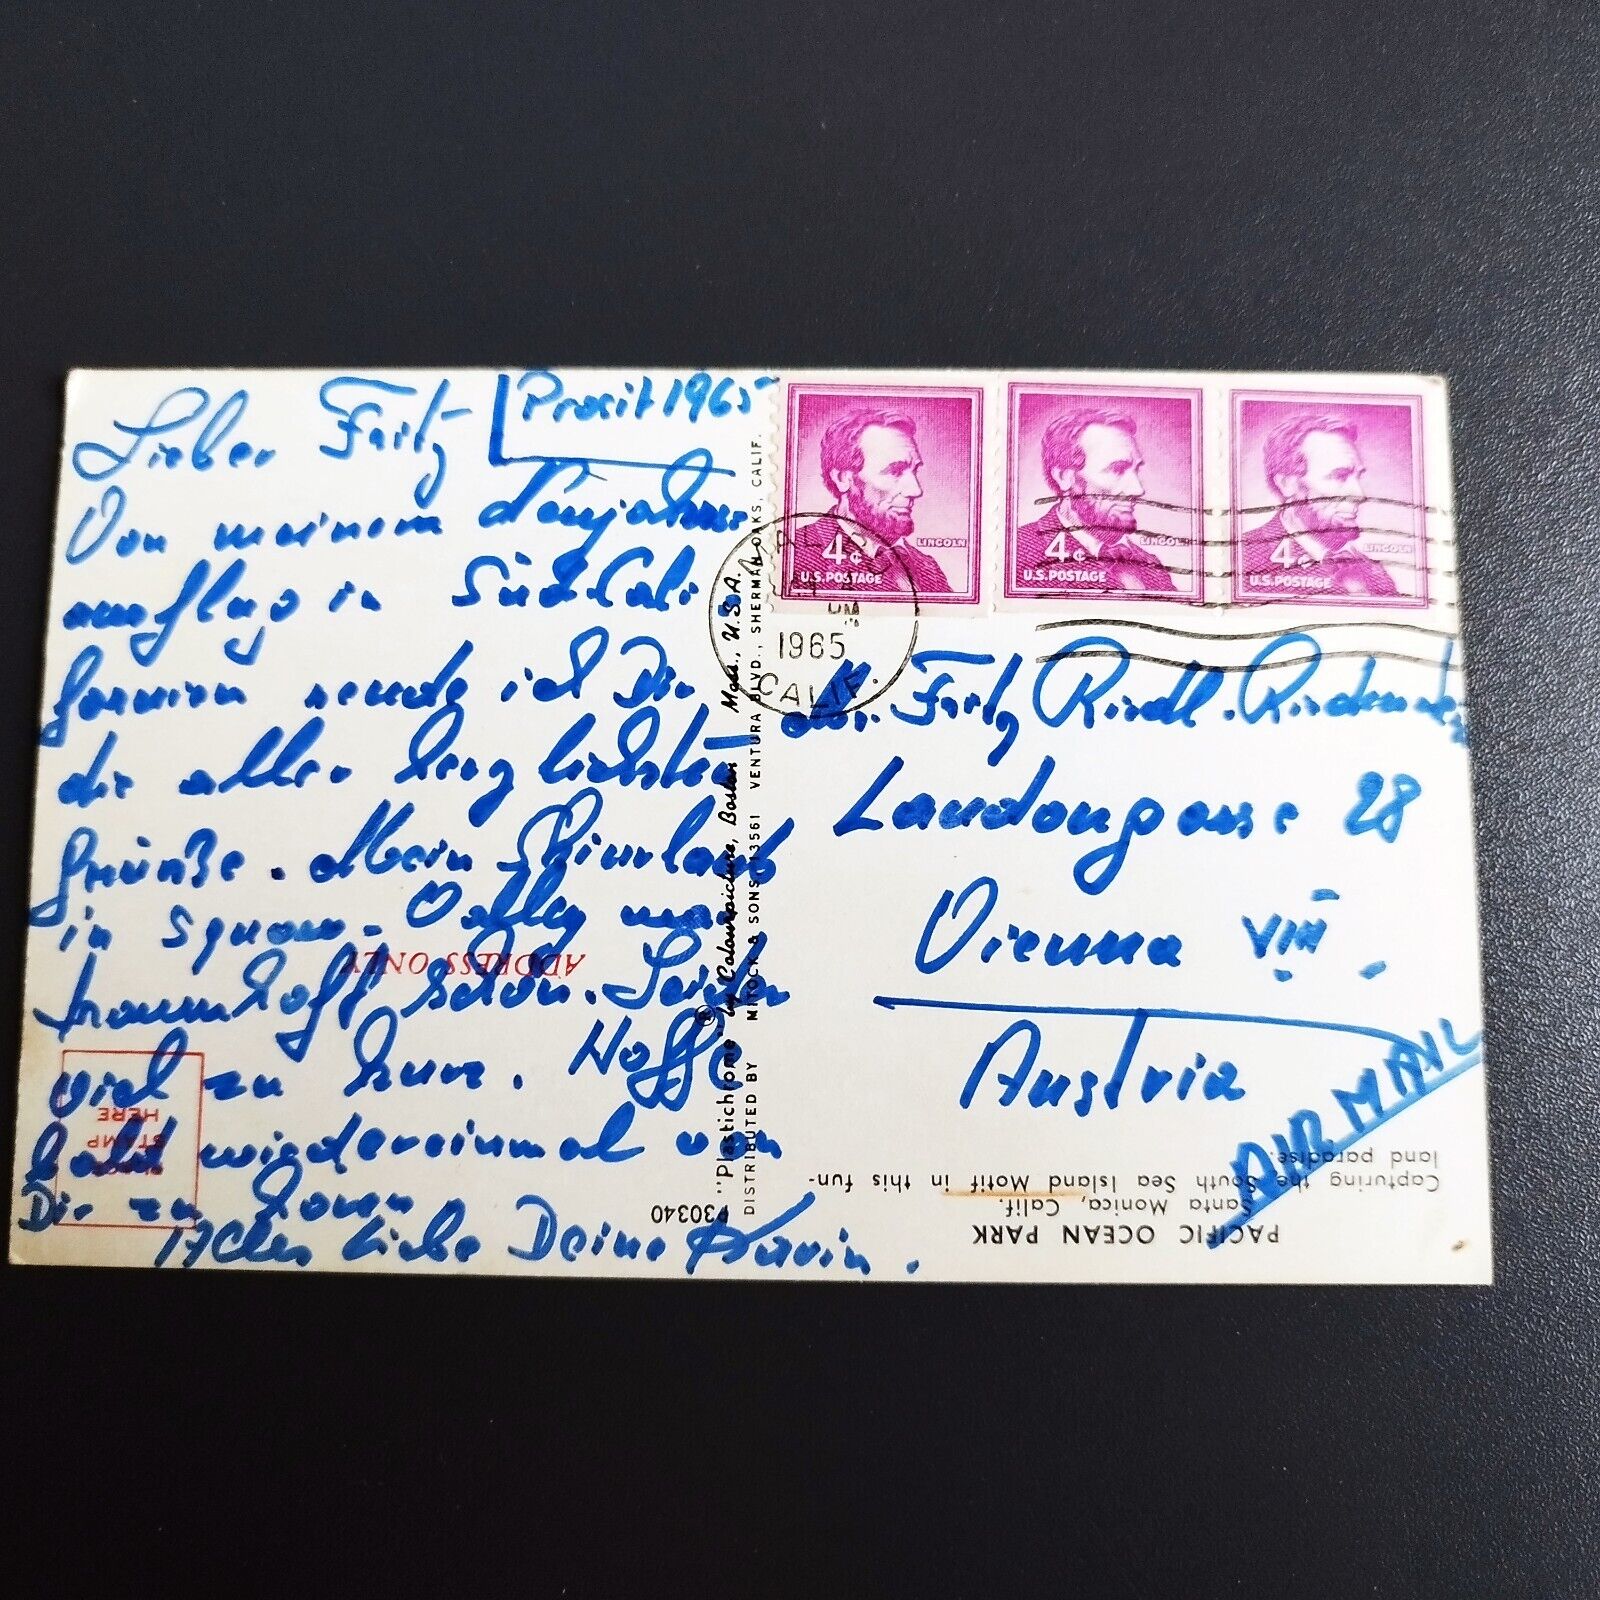 Lieber Fritz
Prosit 1965
Von meinem Neujahrs
ausflug in Südkali
fornien sende ich Dir
die aller herzlichsten
Grüße. Mein Skiurlaub
in Squaw-Valley war
traumhaft schön. Leider
viel zu kurz. Hoffe
bald wiedereinmal von
Dir zu hören
Alles Liebe Deine Karin.
4¢
U.S. POSTAGE
LINCOLN
4¢
U.S. POSTAGE
LINCOLN
4¢
U.S. POSTAGE
LINCOLN
1965
CALIF.
Fritz Riedl
Laudongasse 28
Vienna VIII.
Austria
AIR MAIL
"Plastichrome"® by Colourpicture, Boston Mass., U.S.A.
DISTRIBUTED BY MITOCK & SONS, 13561 VENTURA BLVD., SHERMAN OAKS, CALIF.
ADDRESS ONLY
PLACE
STAMP
HERE
P30340
PACIFIC OCEAN PARK
Santa Monica, Calif.
Capturing the South Sea Island Motif in this fun-
land paradise.